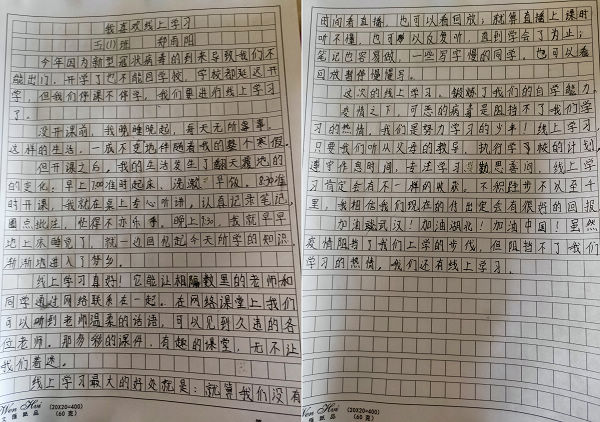 我喜欢线上学习
五(1)班 郑雨阳
今年因为新型冠状病毒的到来导致我们不
能出门，开学了也不能回学校，学校都延迟开
学，但我们停课不停学，我们要进行线上学习
了。
没开课前，我晚睡晚起，每天无所事事，
这样的生活，一成不变地伴随着我的整个寒假。
但开课之后，我的生活发生了翻天覆地的
的变化：早上7:00准时起床、洗漱、早饭。8:30准
时开课，我就在桌上专心听讲，认真记录笔记，
圈点批注，忙得不亦乐乎。晚上9:30，我就早早
地上床睡觉了，就一边回忆起今天所学的知识，
渐渐地进入了梦乡。
线上学习真好！它能让相隔数里的老师和
同学通过网络联系在一起。在网络课堂上我们
可以听到老师温柔的话语，可以见到久违的各
位老师。那多彩的课件，有趣的课堂，无不让
我们着迷。
线上学习最大的好处就是：就算我们没有
Wen Hui (20X20=400)
纸品 (60克)
时间看直播，也可以看回放；就算直播上课时
听不懂，也可以反复听，直到学会了为止；
笔记也容易做，一些写字慢的同学，也可以看
回放暂停慢慢写。
这次的线上学习，锻炼了我们的自学能力。
疫情之下，可恶的病毒是阻挡不了我们学
习的热情，我们是努力学习的少年！线上学习
只要我们听从父母的教导，执行学校的计划，
遵守作息时间，专注学习，勤思善问，线上学
习肯定会有不一样的收获。不积跬步不以至千
里，我相信我们现在的付出定会有很好的回报
加油武汉！加油湖北！加油中国！虽然
疫情阻挡了我们上学的步伐，但阻挡不了我们
学习的热情，我们还有线上学习。
Wen Hui (20X20=400)
纸品 (60克)